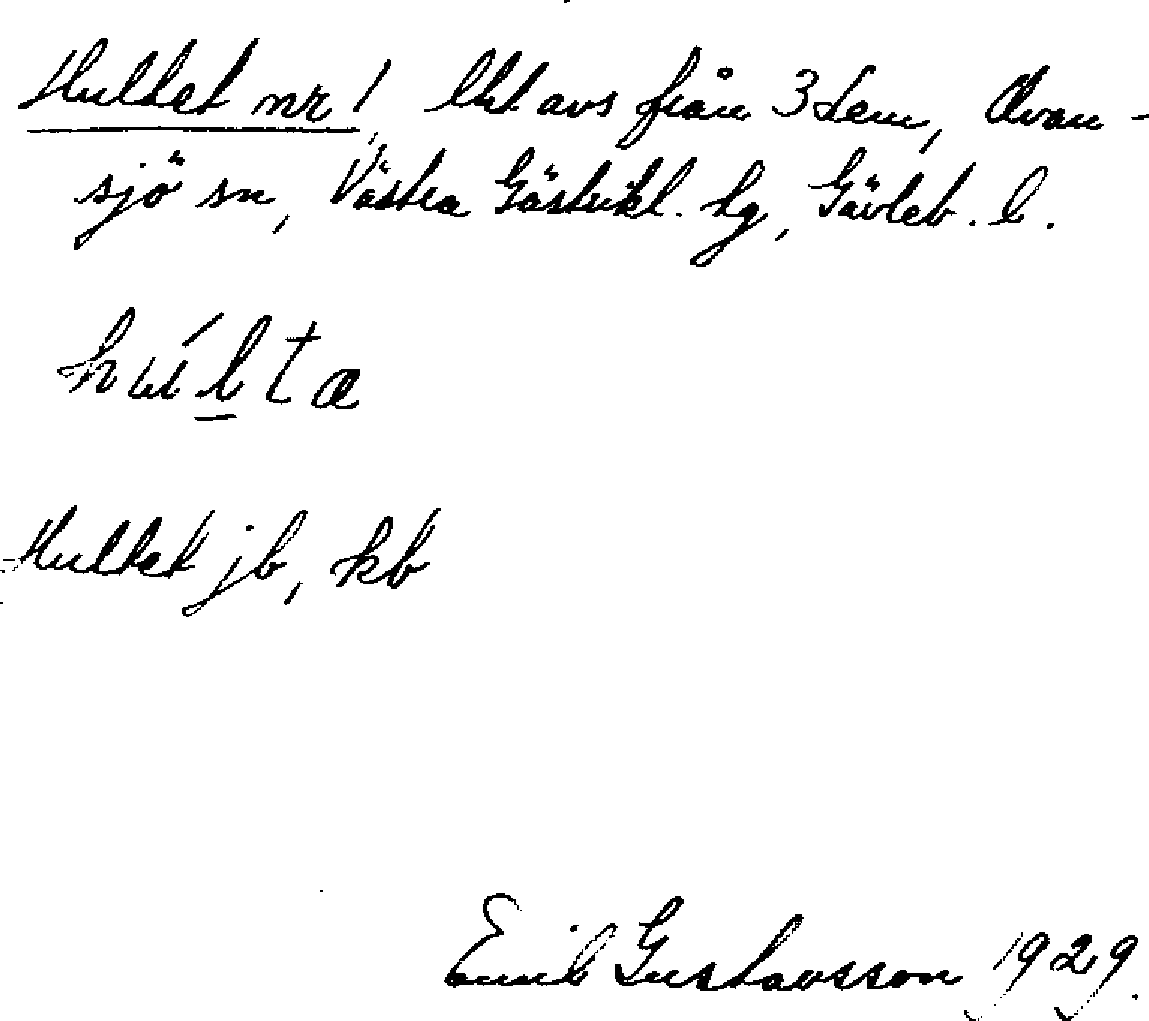 Hultet nr 1, lht avs från 3 Lem, Ovan-
sjö sn, Västra Gästrikl. hg, Gävleb. l.
húlta
Hultet jb, kb
Emil Gustavsson 1929.